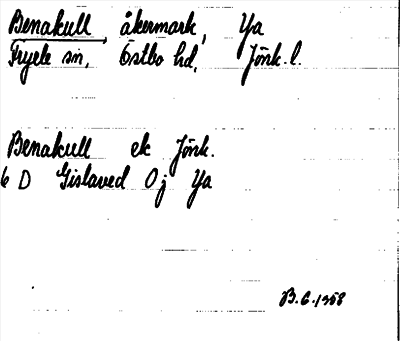 Benakull, åkermark, Ya
Fryele sn, Östbo hd, Jönk. l.
Benakull ek Jönk.
6 D Gislaved 0j Ya
B.G. 1958